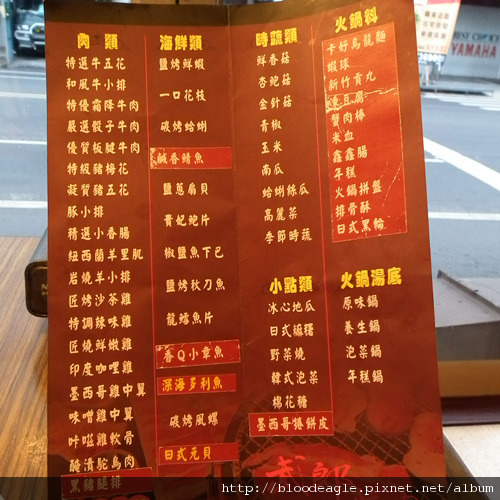 肉類
特選牛五花
和風牛小排
特優霜降牛肉
嚴選骰子牛肉
優質板腱牛肉
特級豬梅花
凝賀豬五花
豚小排
精選小香腸
紐西蘭羊里肌
岩燒羊小排
匠烤沙茶雞
特調辣味雞
匠燒鮮嫩雞
印度咖哩雞
墨西哥雞中翼
味噌雞中翼
咔嗞雞軟骨
醃漬鴕鳥肉
黑豬腿排
海鮮類
鹽烤鮮蝦
一口花枝
碳烤蛤蜊
鹹香鯖魚
鹽蔥扇貝
貴妃鮑片
椒鹽魚下巴
鹽烤秋刀魚
龍鱈魚片
香Q小章魚
深海多利魚
碳烤風螺
日式元貝
時蔬類
鮮香菇
杏鮑菇
金針菇
青椒
玉米
南瓜
蛤蜊絲瓜
高麗菜
季節時蔬
小點類
冰心地瓜
日式麻糬
野菜燒
韓式泡菜
棉花糖
墨西哥捲餅皮
火鍋料
卡好烏龍麵
蝦球
新竹貢丸
凍豆腐
蟹肉棒
米血
鑫鑫腸
年糕
火鍋拼盤
排骨酥
日式黑輪
火鍋湯底
原味鍋
養生鍋
泡菜鍋
年糕鍋
YAMAHA
http://bloodeagle.pixnet.net/album